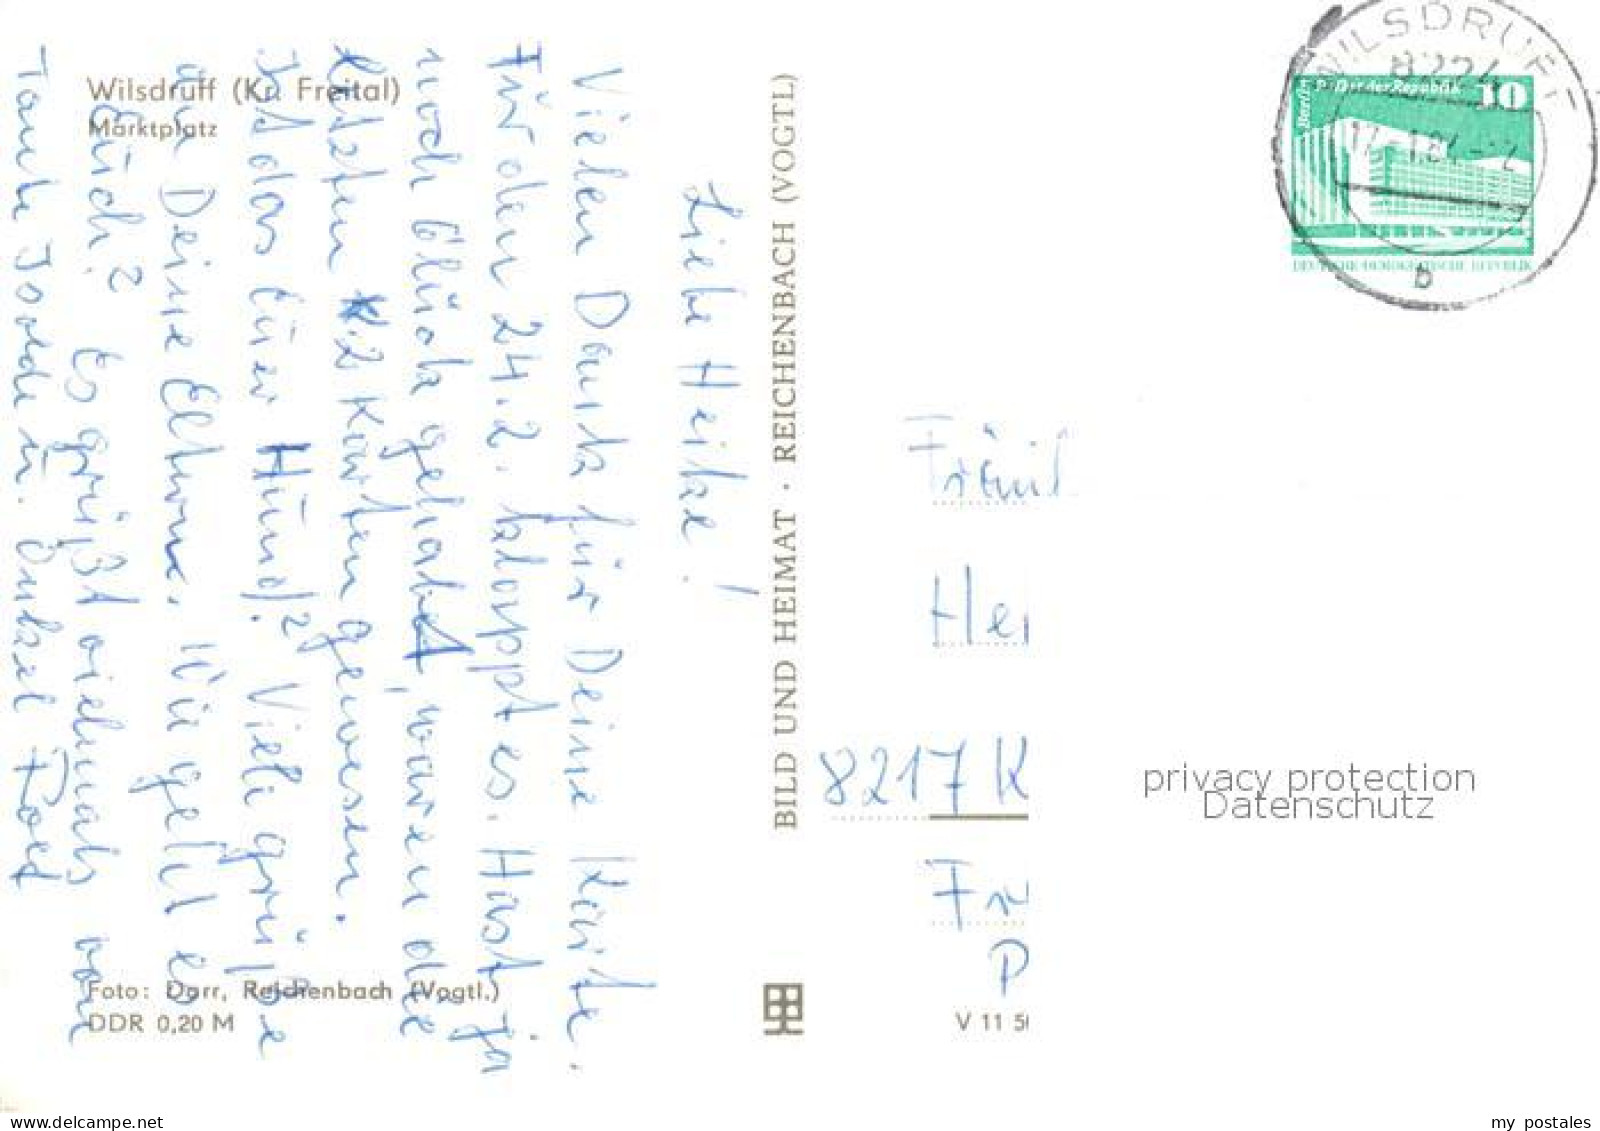 Wilsdruff (Kr. Freital)
Marktplatz
Liebe Heike!
Vielen Dank für Deine Karte.
Für den 24.2. kloppt es. Hast ja
noch Glück gehabt, waren die
letzten 2 Karten gewesen.
Ist das Euer Hund? Viele Grüße
an Deine Eltern. Wie geht es
Euch? Es grüßt vielmals von
Tante Isolde u. Onkel
Foto: Darr, Reichenbach (Vogtl.)
DDR 0,20 M
BILD UND HEIMAT · REICHENBACH (VOGTL)
V 11 50
WILSDRUFF
8224
b
Berlin
Palast der Republik
10
DEUTSCHE DEMOKRATISCHE REPUBLIK
Fräul
Hei
8217 K
P
privacy protection
Datenschutz
www.delcampe.net
my_postales